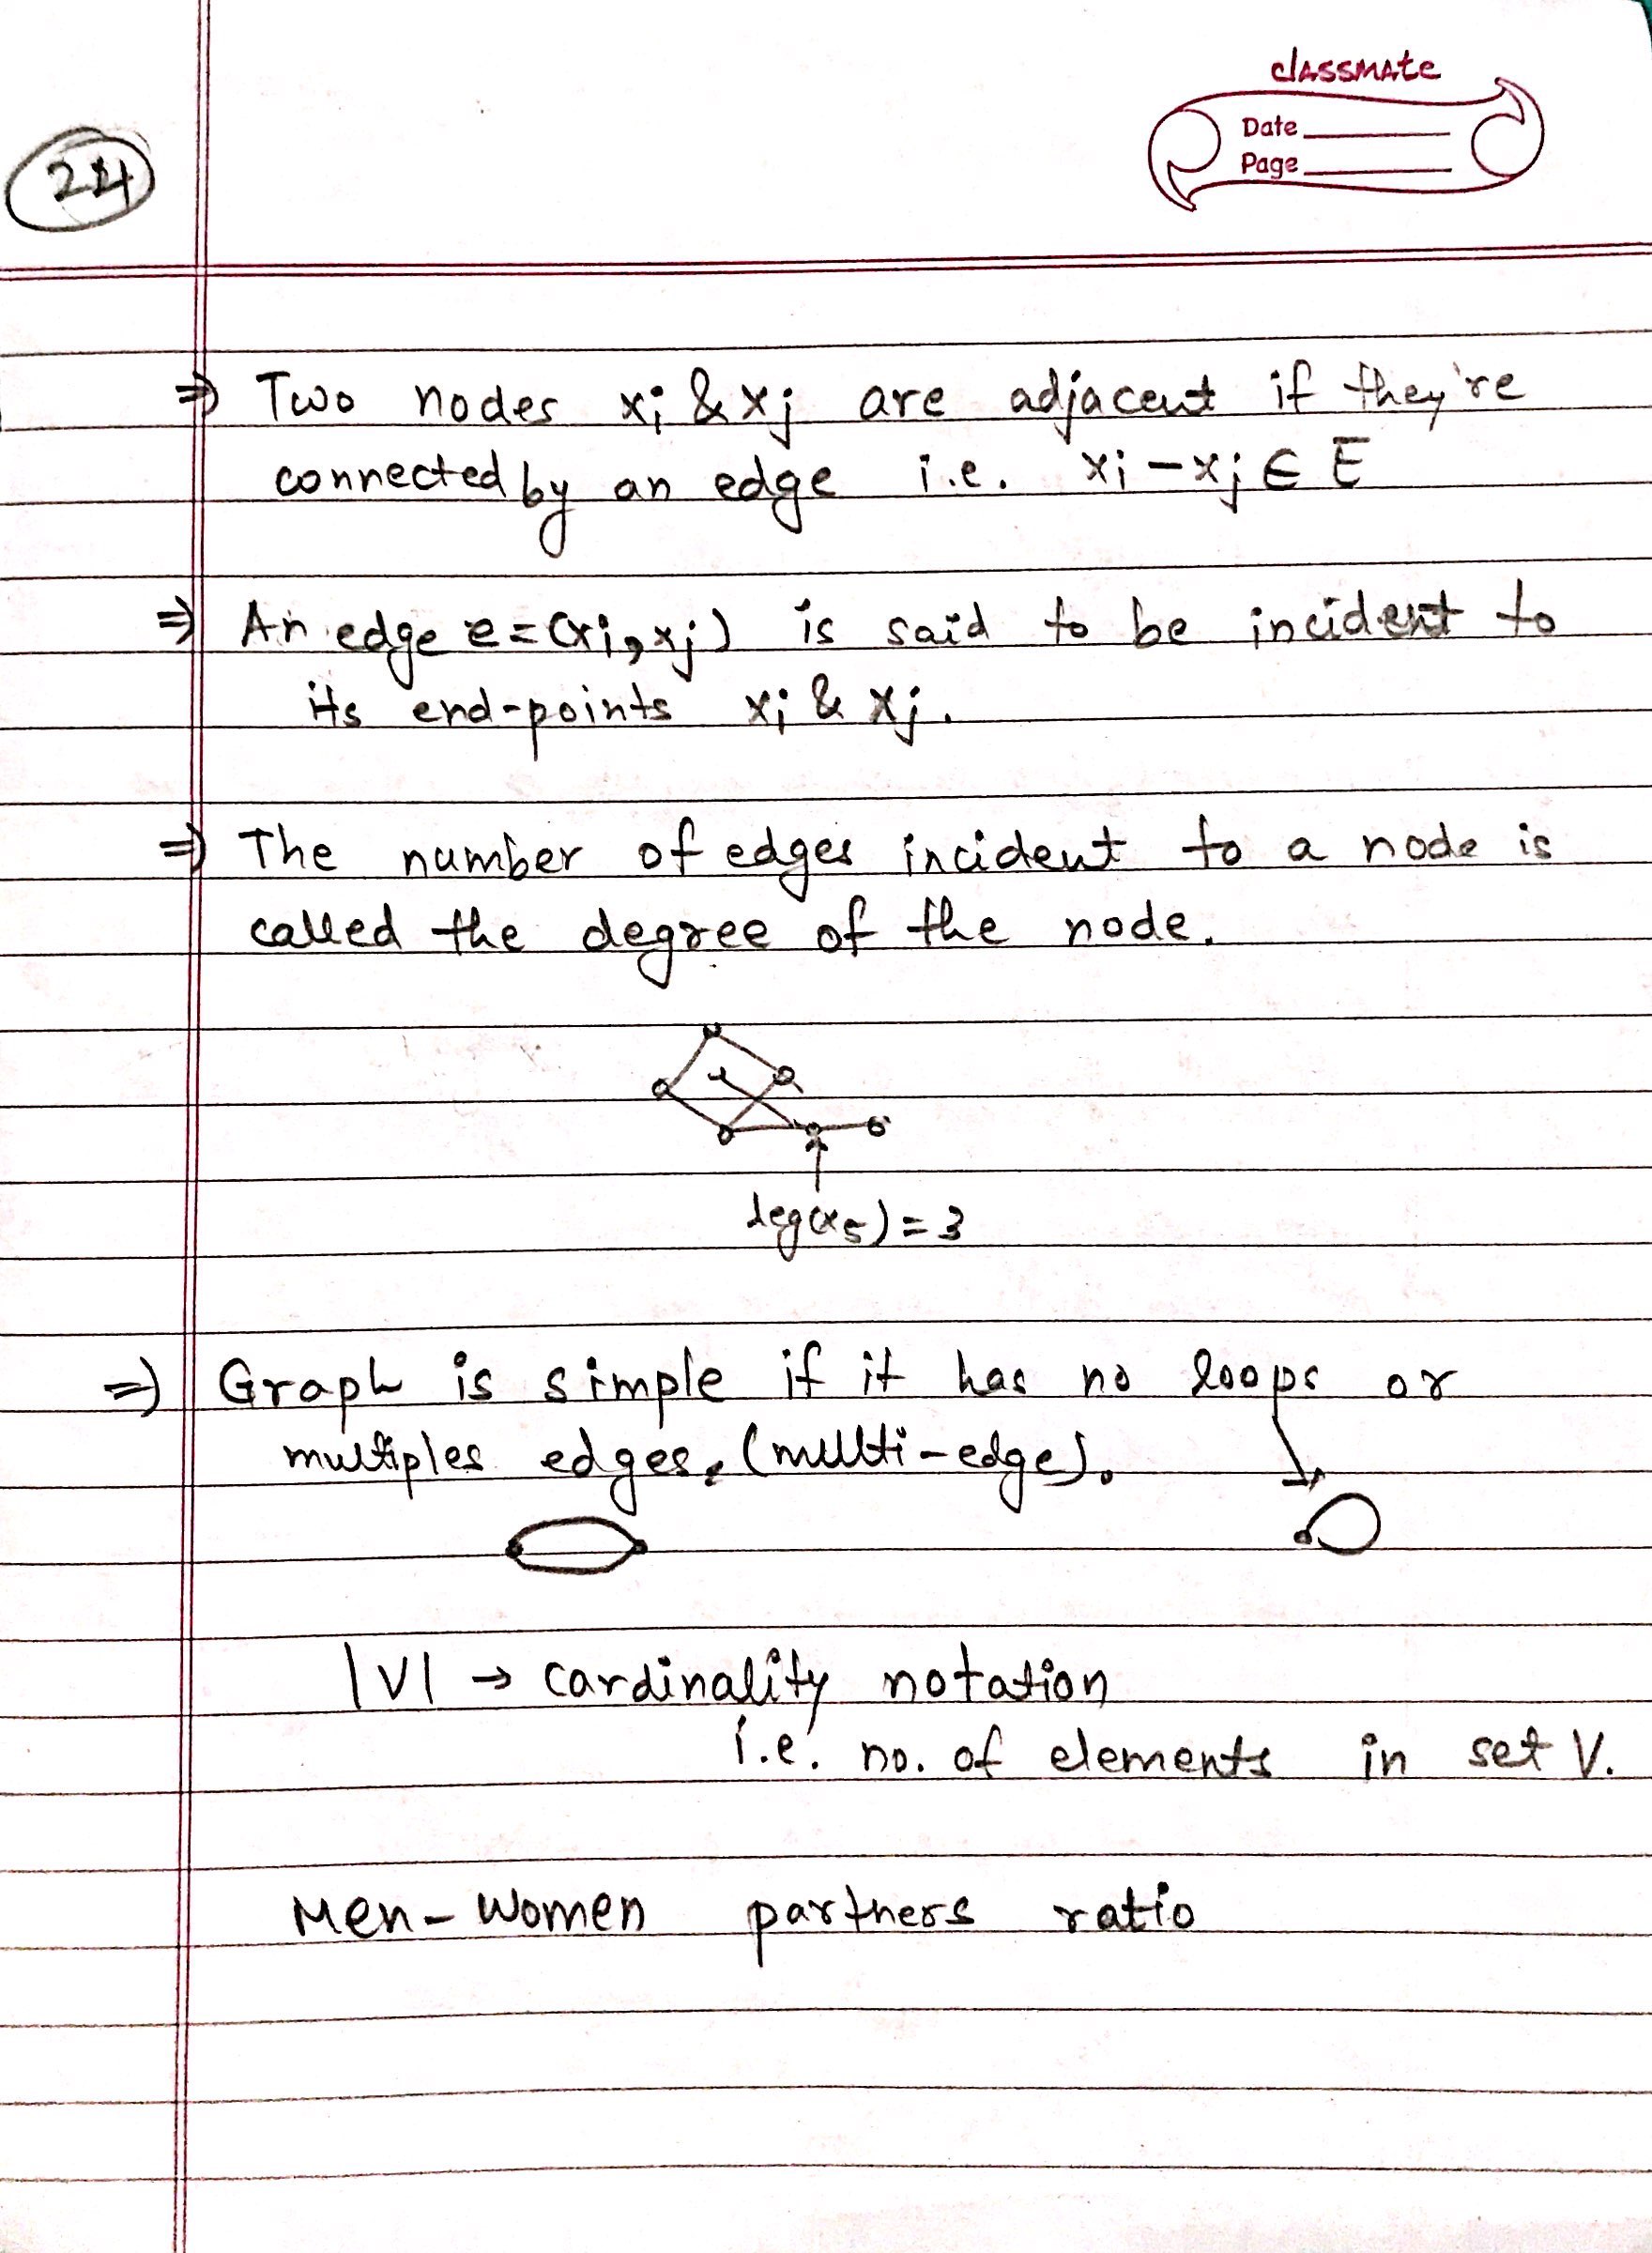 classmate
Date
Page
24
⇒ Two nodes xi & xj are adjacent if they're
connected by an edge i.e. xi – xj ∈ E
⇒ An edge e = (xi, xj) is said to be incident to
its end-points xi & xj.
⇒ The number of edges incident to a node is
called the degree of the node.
deg(x5) = 3
⇒ Graph is simple if it has no loops or
multiples edges. (multi-edge).
|V| → cardinality notation
i.e. no. of elements in set V.
Men-Women partners ratio